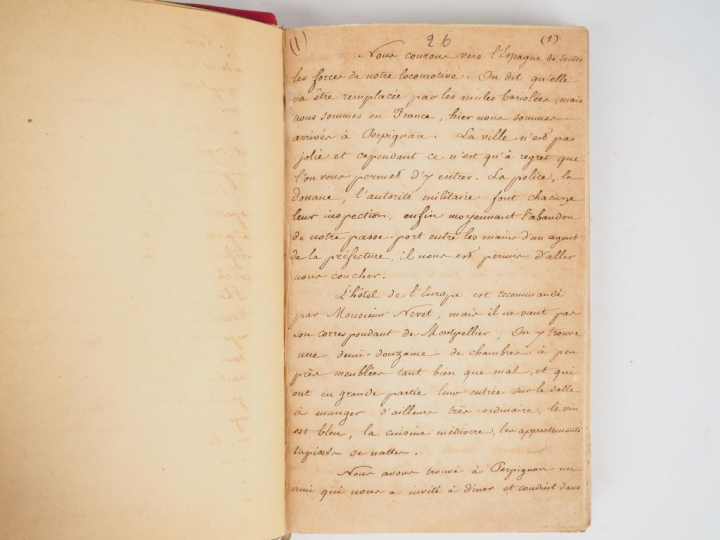 (1) 26 (1)
Nous courons vers l'Espagne de toutes
les forces de notre locomotive. On dit qu'elle
va être remplacée par les mules bariolées, mais
nous sommes en France, hier nous sommes
arrivés à Perpignan. La ville n'est pas
jolie et cependant ce n'est qu'à regret que
l'on vous permet d'y entrer. La police, la
douane, l'autorité militaire font chacune
leur inspection, enfin moyennant l'abandon
de notre passe-port entre les mains d'un agent
de la préfecture, il nous est permis d'aller
nous coucher.
L'hôtel de l'Europe est recommandé
par Monsieur Nevet, mais il ne vaut pas
son correspondant de Montpellier; On y trouve
une demi-douzaine de chambres à peu
près meublées tant bien que mal, et qui
ont en grande partie leur entrée sur la salle
à manger d'ailleurs très ordinaire, le vin
est bleu, la cuisine médiocre, les appartements
tapissés de nattes.
Nous avons trouvé à Perpignan un
ami qui nous a invité à diner et conduit dans